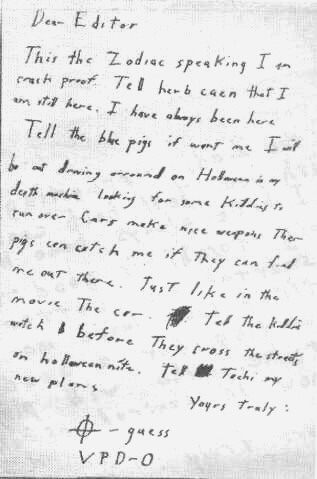 Dear Editor
This the Zodiac speaking I am
crack proof. Tell herb caen that I
am still here. I have always been here
Tell the blue pigs if want me I will
be out driving arround on Halloween in my
death machine looking for some Kiddies to
run over Cars make nice weapons Ther
pigs can catch me if They can find
me out there. Just like in the
movie The car. Tell the kiddies
watch before They cross the streets
on halloween nite. Tell Toschi my
new plans
Yours Truly:
- guess
VPD-0